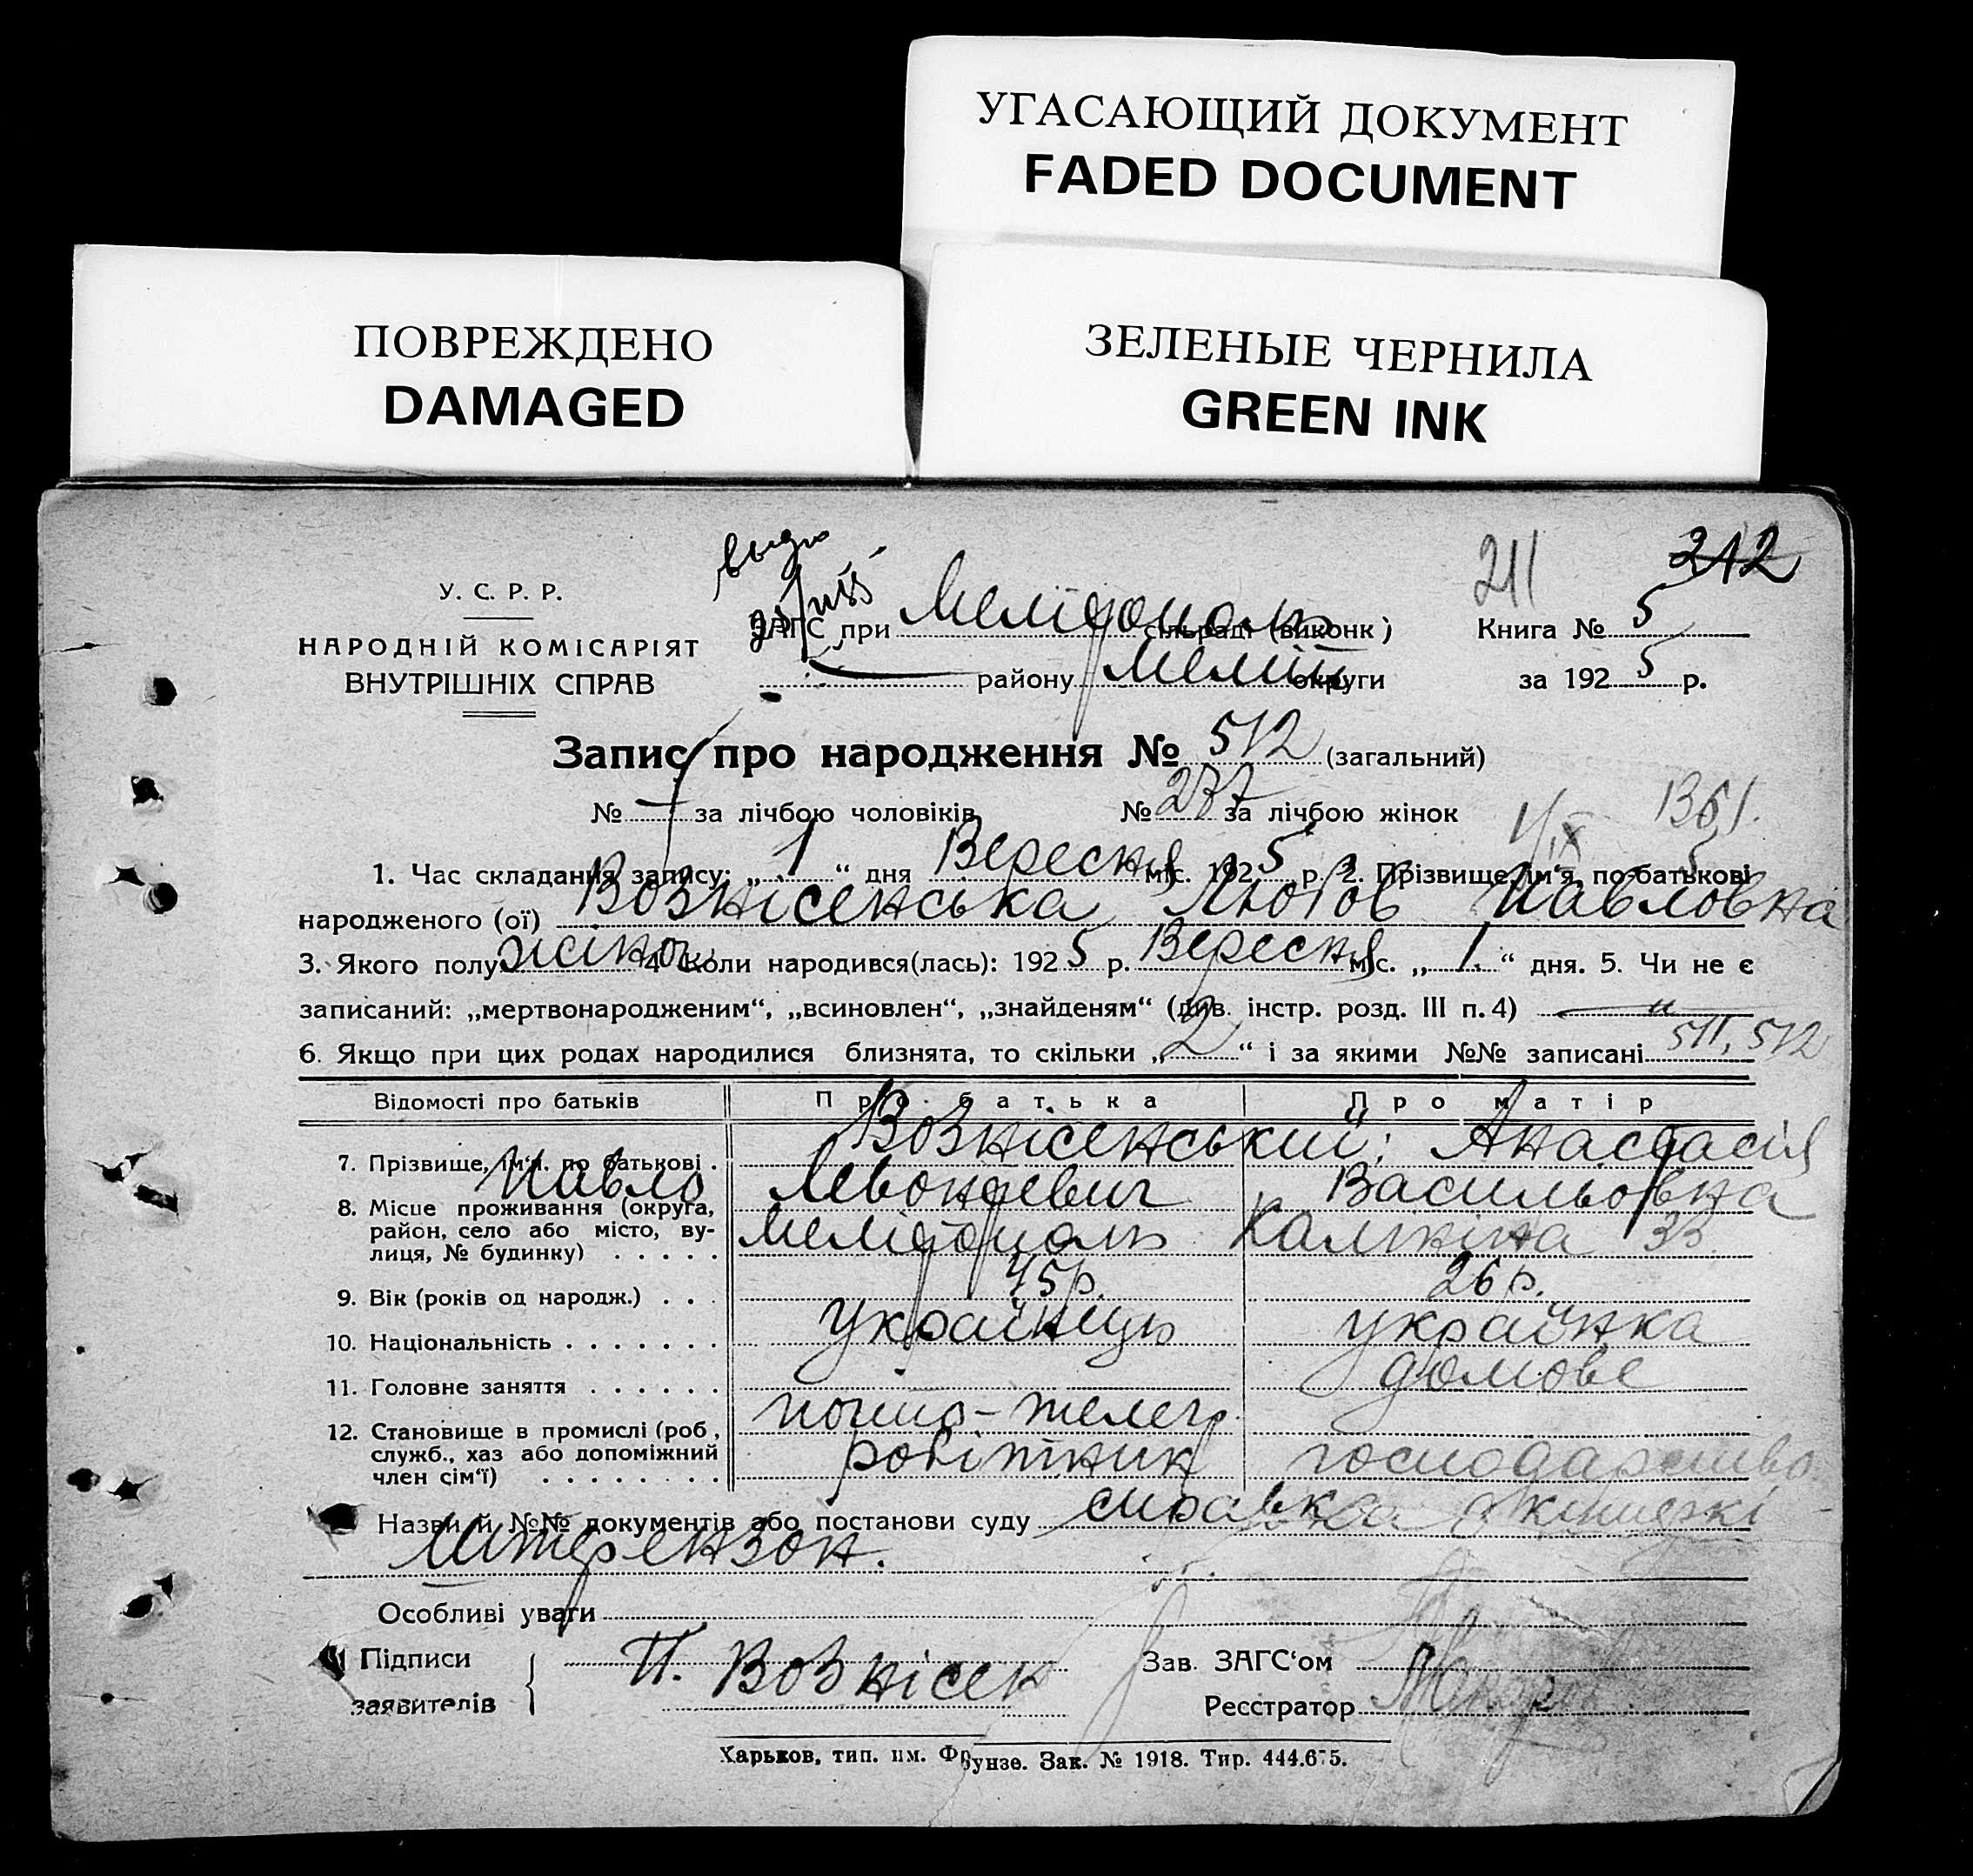 УГАСАЮЩИЙ ДОКУМЕНТ
FADED DOCUMENT
ПОВРЕЖДЕНО
DAMAGED
ЗЕЛЕНЫЕ ЧЕРНИЛА
GREEN INK
211 212
У. С. Р. Р.
НАРОДНІЙ КОМІСАРІЯТ
ВНУТРІШНІХ СПРАВ
ЗАГС при Мелітополь сільраді (виконк) Книга № 5
району Меліт округи за 1925 р.
Запис про народження № 512 (загальний)
№ за лічбою чоловіків № 237 за лічбою жінок
1. Час складання запису: „1“ дня Вересня міс. 1925 р. 2. Прізвище, ім'я, по-батькові
народженого (ої) Вознісенська Любов Павловна
3. Якого полу жіноч. 4 Коли народився(лась): 1925 р. Вересня міс. „1.“ дня. 5. Чи не є
записаний: „мертвонародженим“, „всиновлен“, „знайденям“ (див. інстр. розд. III п. 4)
6. Якщо при цих родах народилися близнята, то скільки „2“ і за якими №№ записані 511, 512
Відомості про батьків Про батька Про матір
Вознісенський Анастасія
7. Прізвище, ім'я, по батькові .
Павло Левонтевич Васильовна
8. Місце проживання (округа,
район, село або місто, ву-
лиця, № будинку) . . . . . Мелітополь Калініна 33
9. Вік (років од народж.) . . . 45 р. 26 р.
10. Національність . . . . . . . українець українка
11. Головне заняття . . . . . . домове
почто-телегр.
12. Становище в промислі (роб,
служб., хаз або допоміжний
член сім'ї) . . . . . . . . робітник господарство
Назви й №№ документів або постанови суду справка
Штерензон.
Особливі уваги
Підписи
заявителів П. Вознісен
Зав. ЗАГС'ом
Реєстратор
Харьков, тип. им. Фрунзе. Зак. № 1918. Тир. 444.675.